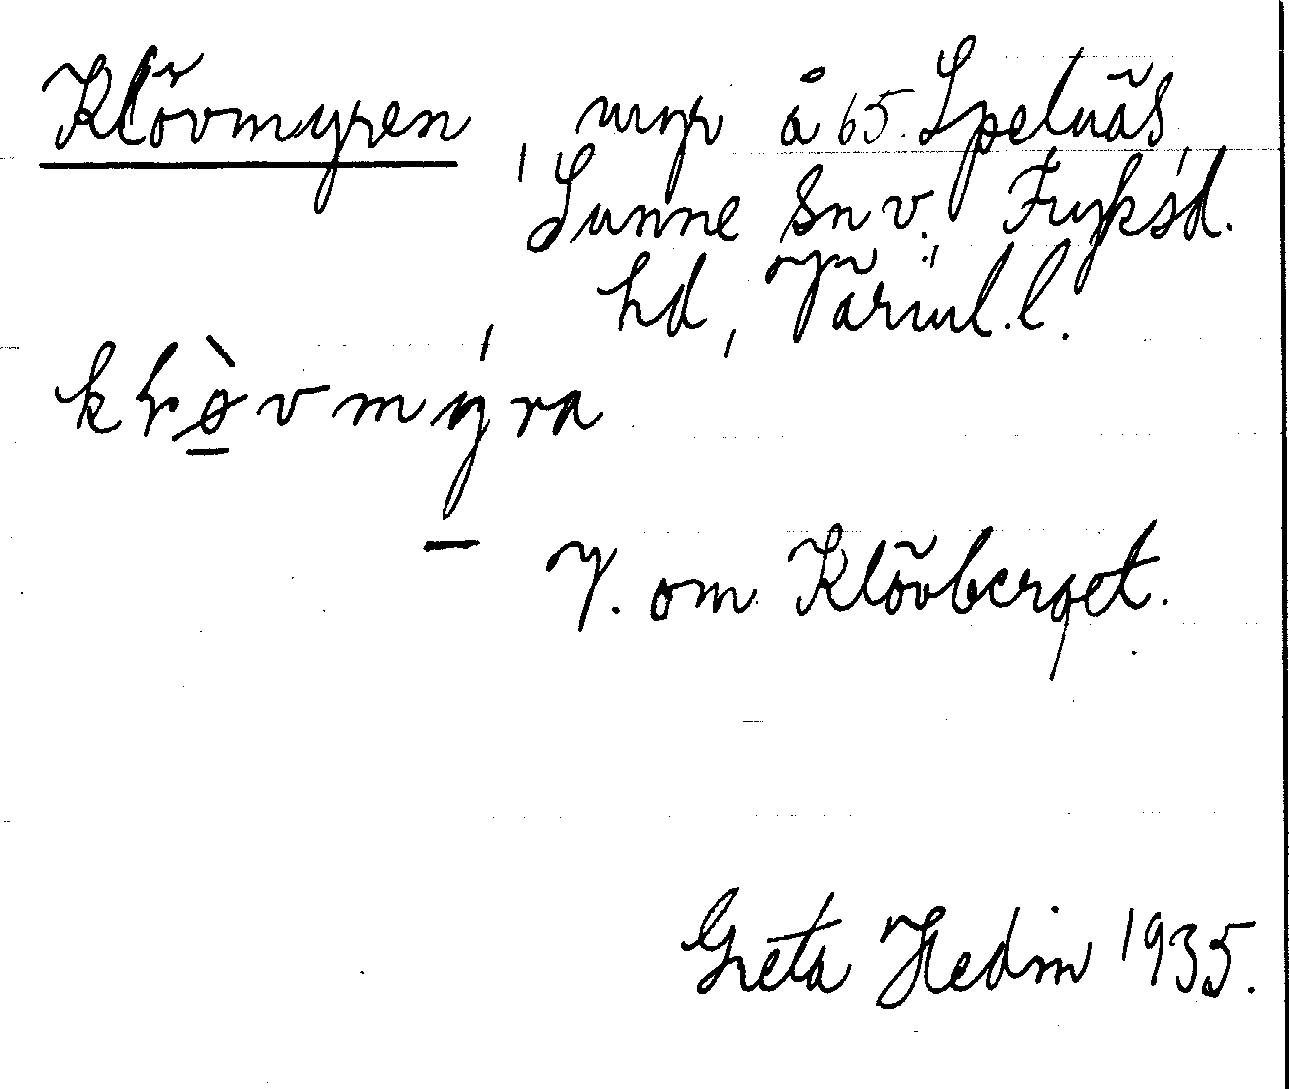 Klövmyren, myr å 65. Spelnäs,
Sunne sn v., Fryksd.
hd, Värml. l.
kḷø̀vmýra
V. om Klövberget.
Greta Hedin 1935.